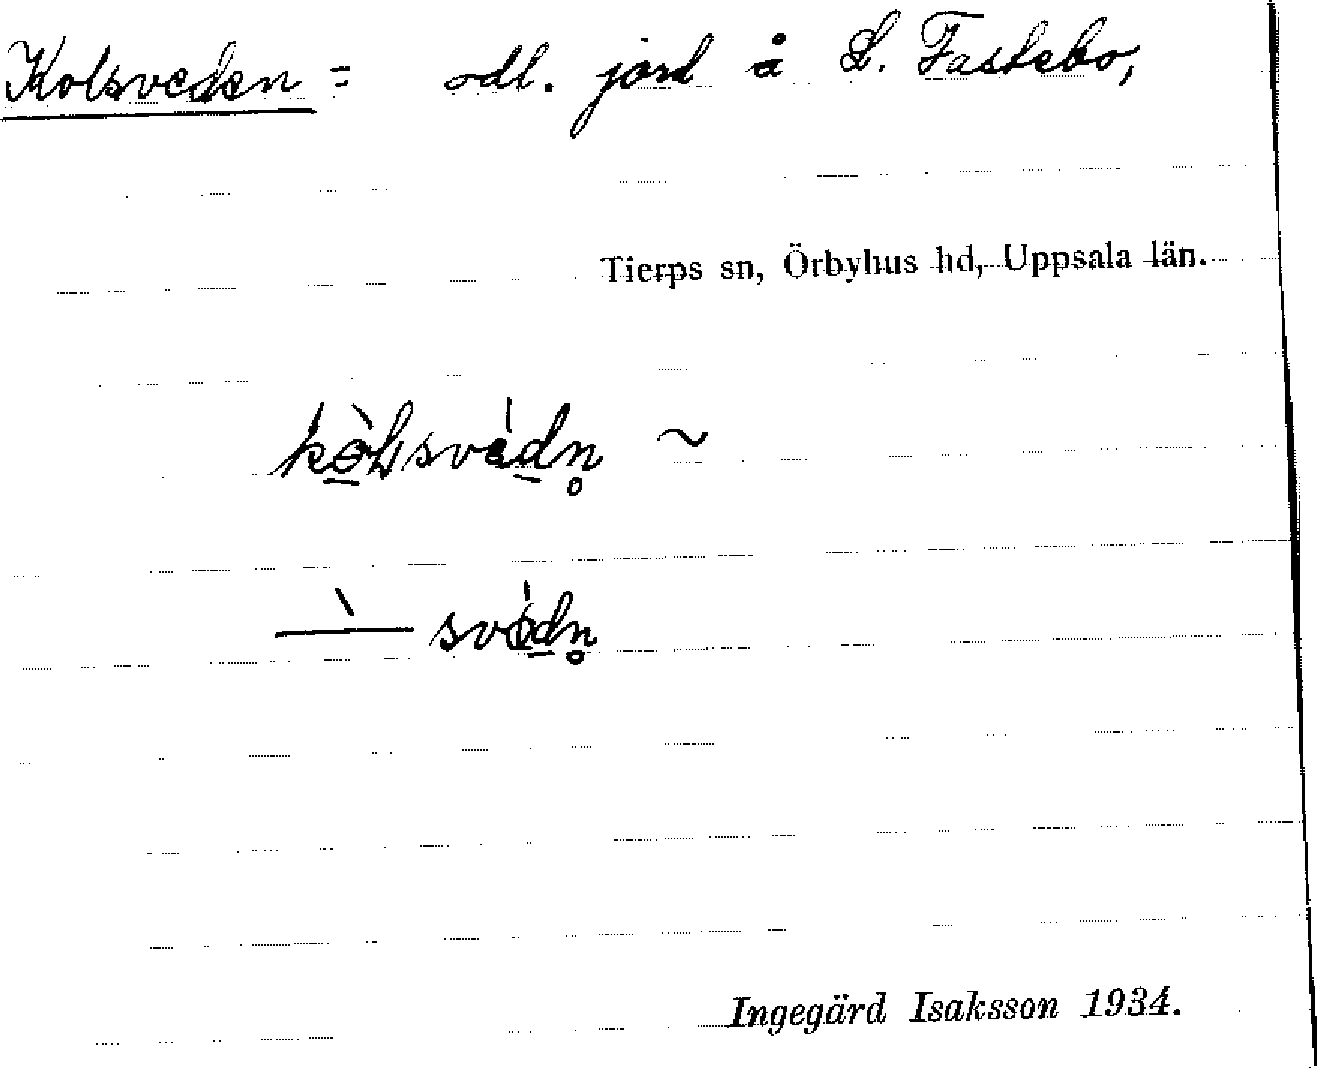 Kolsveden = odl. jord å L. Fastebo,
Tierps sn, Örbyhus hd, Uppsala län.
kòḷsvédn̥ ~
—̀ svédn̥
Ingegärd Isaksson 1934.